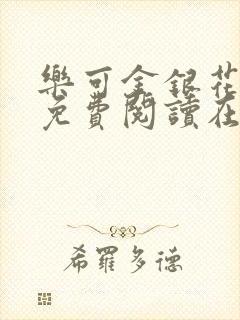 樂可金銀花
免費閱讀在
希羅多德